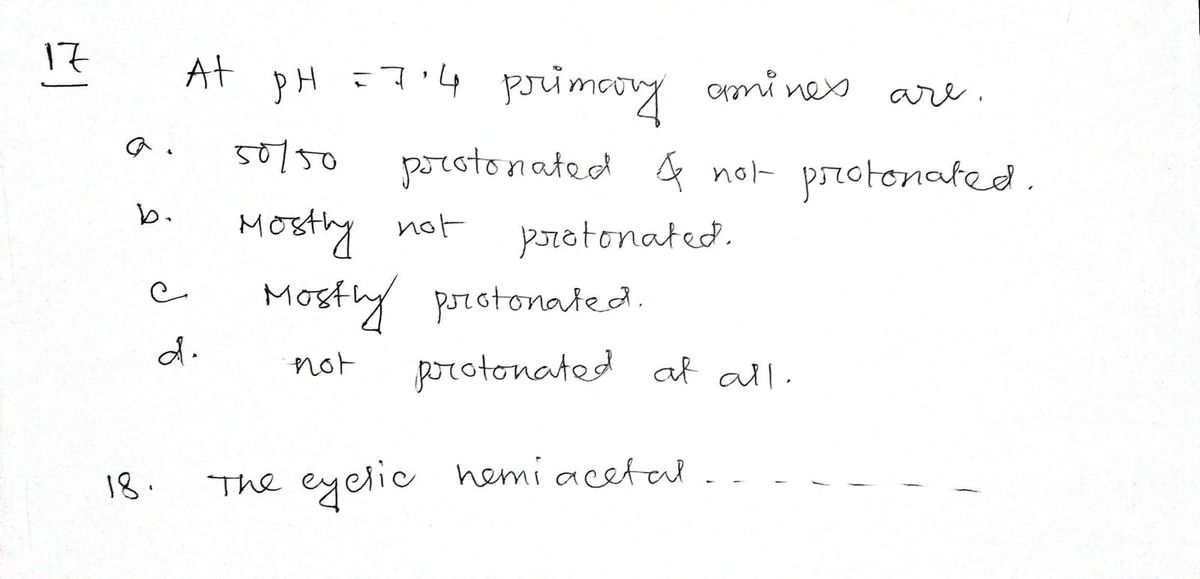 17 At pH = 7.4 primary amines are.
a. 50/50 protonated & not protonated.
b. Mostly not protonated.
c Mostly protonated.
d. not protonated at all.
18. The cyclic hemi acetal - - - - - - - -